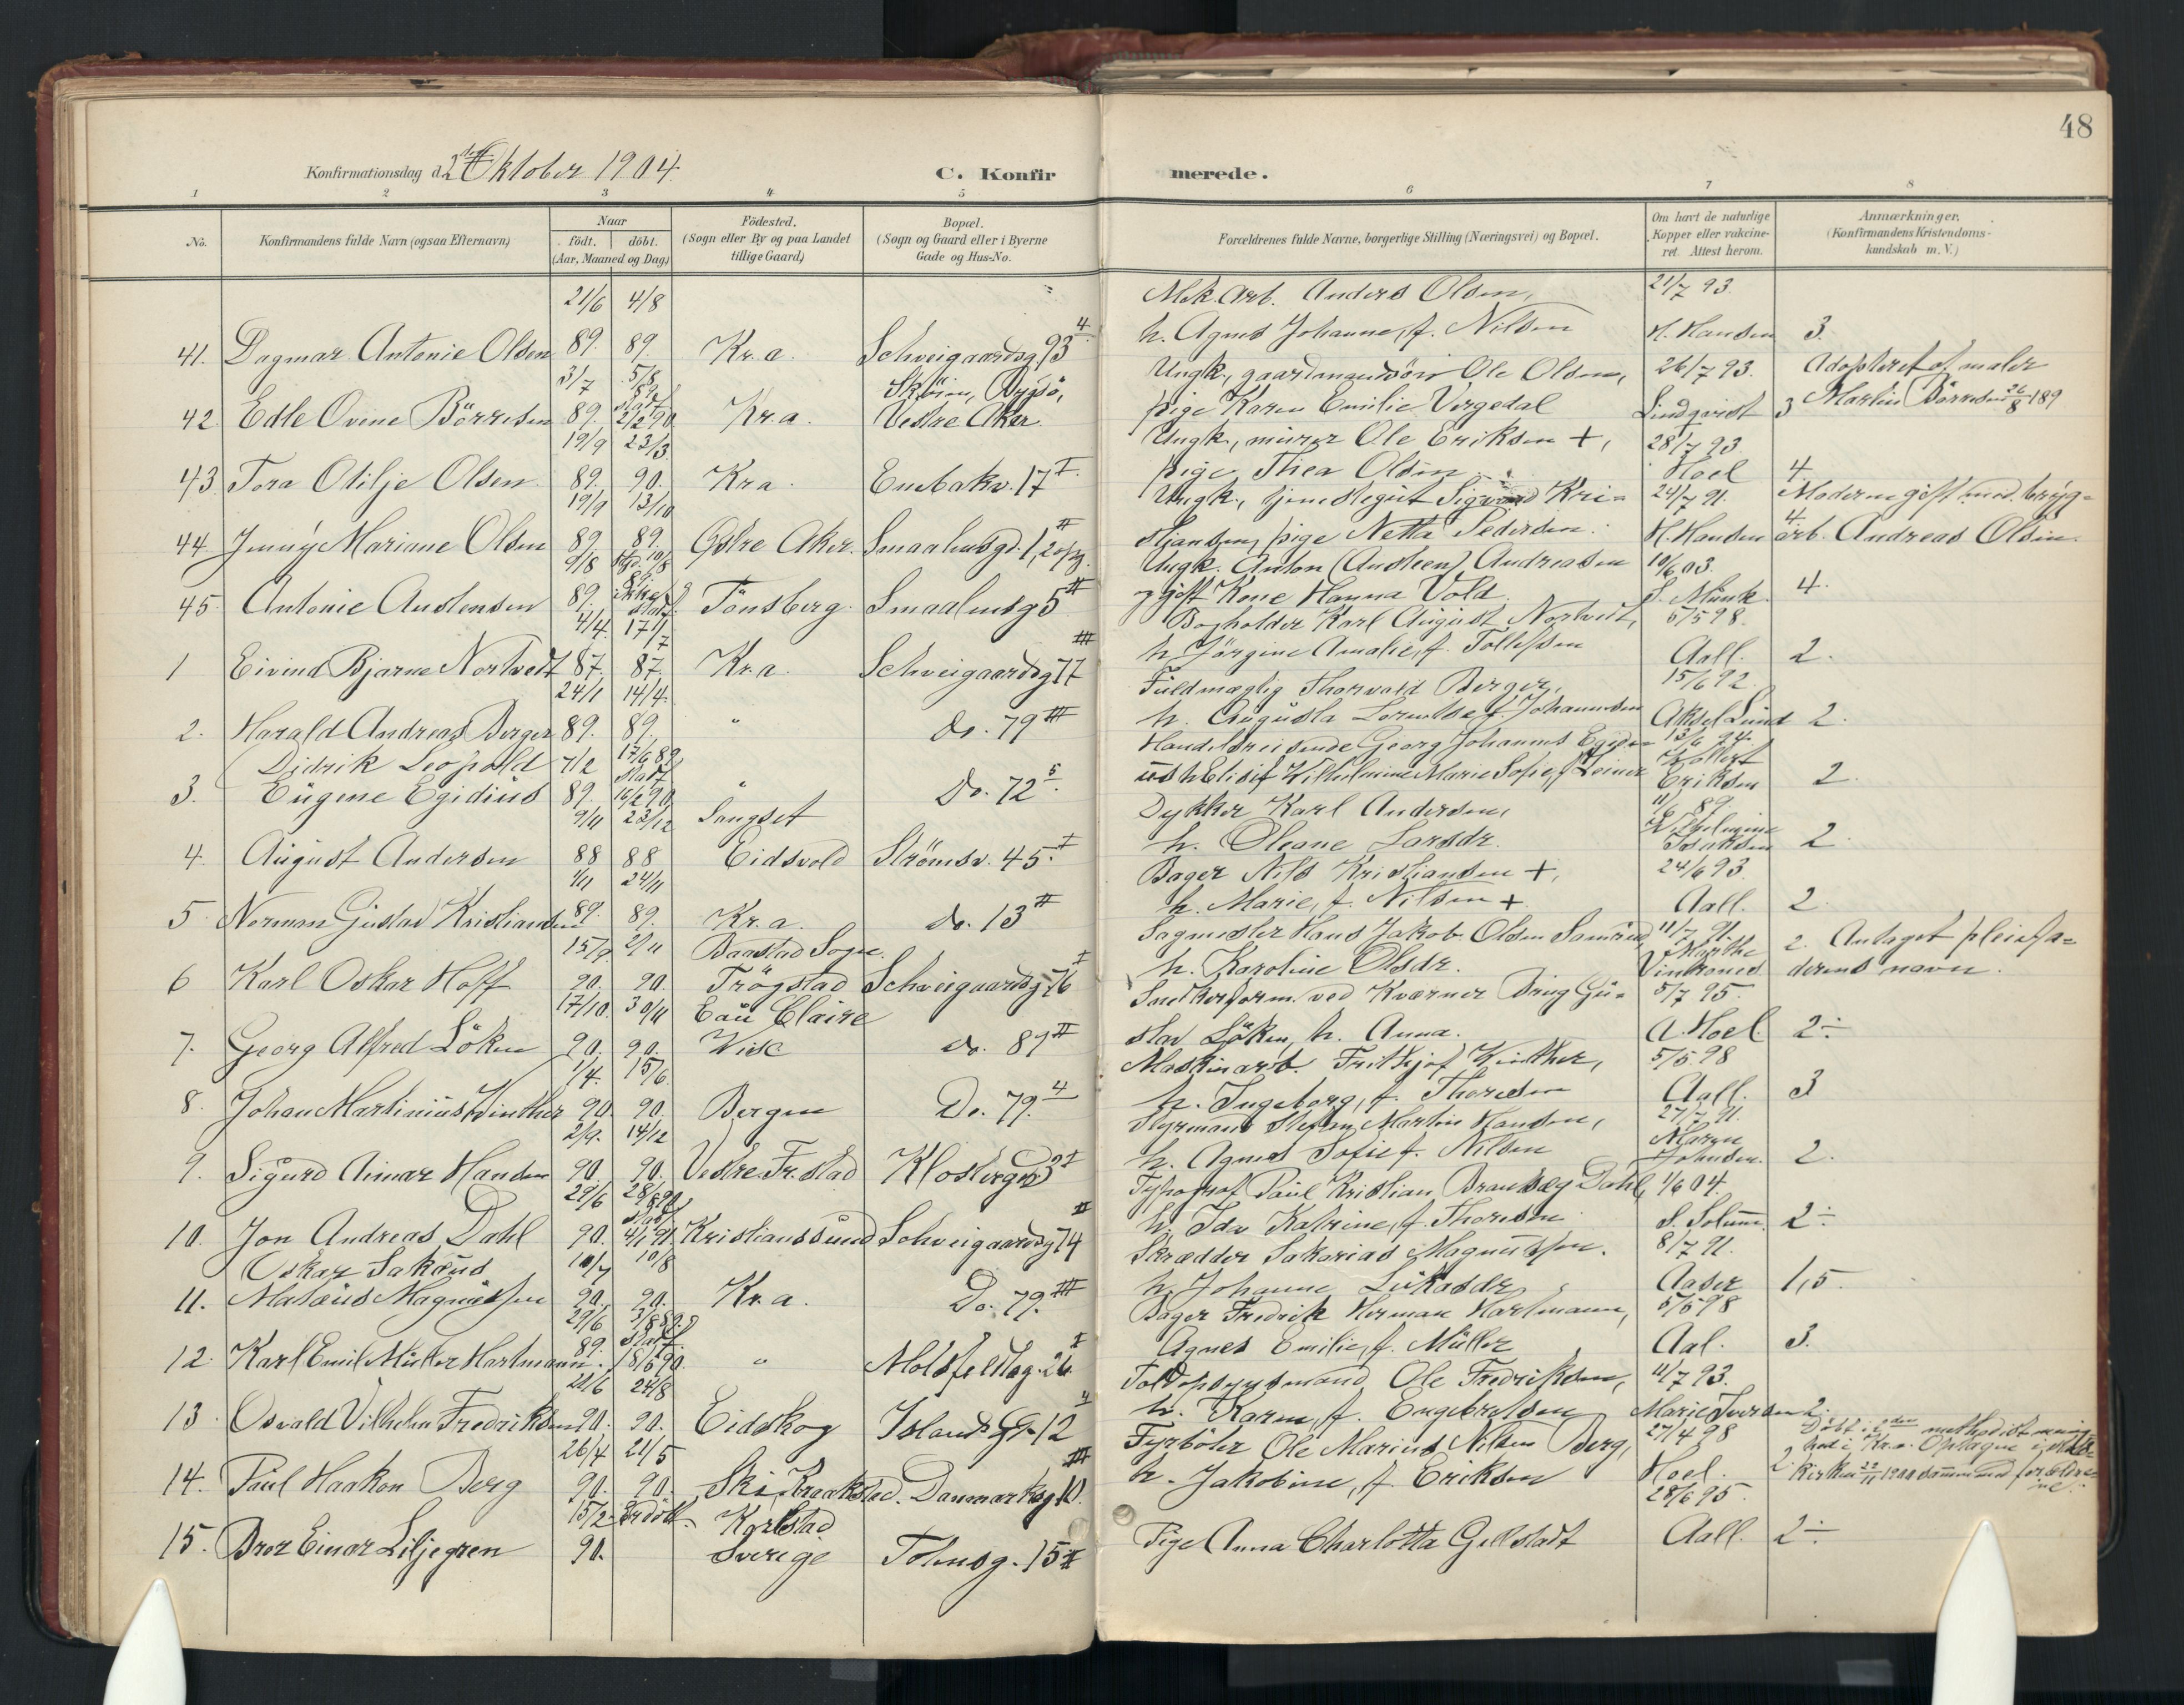 48
Konfirmationsdag d. 2den Oktober 1904.
C. Konfirmerede.
1 2 3 4 5 6 7 8
No.
Konfirmandens fulde Navn (ogsaa Efternavn)
Naar
födt. döbt.
(Aar, Maaned og Dag)
Födested.
(Sogn eller By og paa Landet
tillige Gaard)
Bopæl.
(Sogn og Gaard eller i Byerne
Gade og Hus-No.
Forældrenes fulde Navne, borgerlige Stilling (Næringsvei) og Bopæl.
Om havt de naturlige
Kopper eller vakcine-
ret. Attest herom.
Anmærkninger.
(Konfirmandens Kristendoms-
kundskab m. V.)
21/6 4/8 Mek. Arb. Anders Olsen, 21/7 93.
41. Dagmar Antonie Olsen 89. 89. Kr.a. Schveigaardsg 93 4 h. Agnes Johanne, f. Nilsen H. Hansen 3.
3/7 5/8 89 Sköien, Bygdö, Ungk., gaardmandsön Ole Olsen, 26/7 93. Adopteret af maler
42 Edle Ovine Börresen 89. stadf. 2/2 90 Kr.a. Vestre Aker. pige Karen Emilie Vergedal Lindqvist 3 Martin Börresen 26/8 189
19/9 23/3 Ungk., murer Ole Eriksen +, 28/7 93.
43. Tora Otilje Olsen. 89. 90. Kr.a. Enebakv. 17 I. pige Thea Olsen Hoel 4.
19/9 13/10 Ungk., tjenestegut Sigvard Kri= 24/7 91. Moderen gift med bryg=
44. Jenny Mariane Olsen 89 89. Østre Aker. Smaalensgd. 1, 2 opg. II stiansen, pige Netta Pedersen. H. Hansen 4. arb. Andreas Olsen.
9/8 10/8 Ungk. Anton (Austeen) Andreasen 10/6 03.
45. Antonie Austensen 89. 89. Ikke stadf. Tönsberg. Smaalensg 5 II gift Kone Hanna Vold S. Munk. 4.
4/4. 17/7 Bogholder Karl August Nortvedt, 5/5 98.
1 Eivind Bjarne Nortvedt 87. 87. Kr.a. Schveigaardsg 77 III h. Jörgine Amalie, f. Tollefsen Aall. 2.
24/1 14/4. Fuldmægtig Thorvald Berger, 15/6 92.
2. Harald Andreas Berger 89. 89. " do. 79 III h. Augusta Lorentse f. Johannesen Aksel Lund 2.
Didrik Leopold 7/2 17/6 89. Handelsreisende Georg Johannes Egidi= 13/6 94.
3. Eugene Egidius 89. stadf. 16/2 90. " Do. 72 5. us h. Elisif Vilhelmine Marie Sofie, f. Leiner Eriksen 2.
9/11 23/12 Langset Dykker Karl Andersen, 11/6 89.
4. August Andersen 88 88 Eidsvold Strömsv. 45. I h. Oleane Larsdr. Vilhelmine Isaksen 2.
4/11 24/11 Bager Nils Kristiansen +, 24/6 93.
5 Norman Gustav Kristiansen 89. 89. Kr.a. do. 13 II h. Marie, f. Nilsen +. Aall. 2.
15/9 2/11 Baastad Sogn. Sagmester Hans Jakob Olsen 11/7 91. 2. Antaget pleiefa=
6 Karl Oskar Hoff 90. 90. Trögstad Schveigaardsg 76 I h. Karoline Olsdr. Marthe derens navn.
17/10. 30/11 Eau Claire Snedkerform. ved Kværner Brug Gu= 5/7 95.
7. Georg Alfred Löken 90. 90. Wisc do. 87 II stav Löken, h. Anna. A. Hoel 2÷
1/4. 15/6. Maskinarb. Frithjof Winther, 5/5 98
8. Johan Martinius Winther 90. 90. Bergen Do. 79. 4 h. Ingeborg, f. Thoresen Aall. 3
2/9. 14/12 Styrmand Stefan Martin Hansen, 27/7 91.
9. Sigurd Aimar Hansen 90. 90. Vestre Fr. stad Klostergd. 3 I h. Agnes Sofie f. Nilsen Maren Johansen. 2.
29/6 28/8 90. Typograf Paul Kristian Dahl, 1/6 04.
10. Jon Andreas Dahl 90. stadf. 4/1 91. Kristianssund Schveigaardsg 74 II h. Ida Katrine, f. Thoresen S. Solum. 2÷
Oskar Sakæus 10/7 10/8 Skrædder Sakarias Magnussen. 8/7 91.
11. Matæus Magnussen 90. 90. Kr.a. Do. 79. III h. Johanne Lukasdr. Aaser 1,5.
29/6 3/8 89. Bager Fredrik Herman Hartmann, 5/5 98
12. Karl Emil Müller Hartmann. 89. stadf. 18/6 90. " Motzfeldtsg. 26 I Agnes Emilie, f. Müller Aal. 3.
21/6 24/8 Toldopsynsmand Ole Fredriksen, 11/7 93.
13. Osvald Vilhelm Fredriksen 90. 90. Eidskog Islands Gt. 12 h. Karen, f. Engebretsen Marie Iversen 2.
26/4 21/5 Fyrböter Ole Marius Nilsen Berg, 27/4 98 Döbt i 2den methodistmenig=
14. Paul Haakon Berg 90. 90. Ski, Kraakstad. Danmarksg 10. III h. Jakobine, f. Eriksen Hoel. 2. hed i Kr.a. Optagen i stats=
15/2 Er döbt. Karlstad 28/6 95. kirken 22/11 1900 sammen med foræld=rene.
15. Bror Einar Liljegren 90. Sverige Töiensg. 15 II Pige Anna Charlotta Gellstadt Aall. 2÷